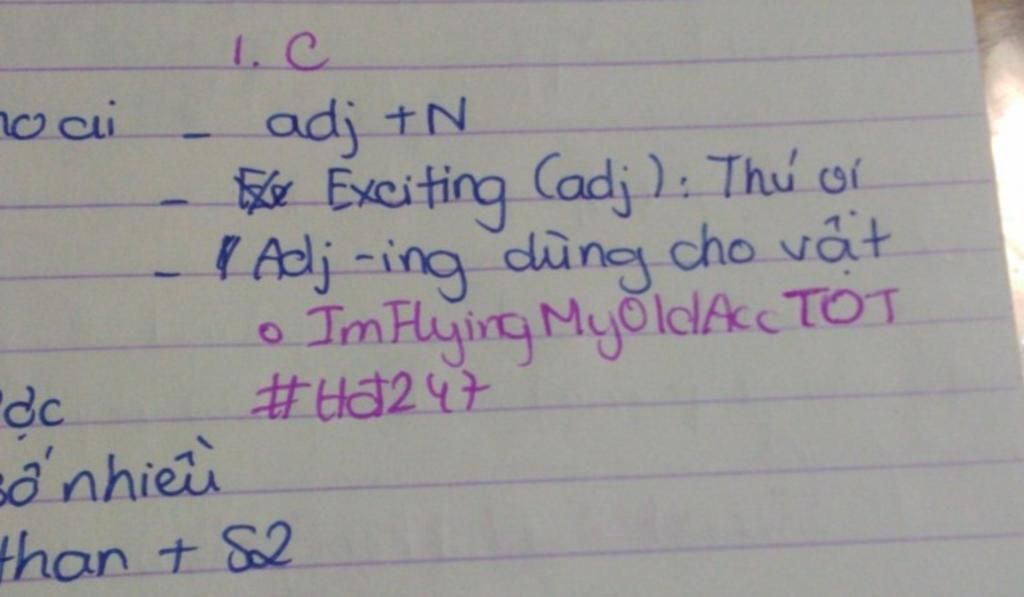 1. C
ai - adj + N
- Exciting (adj): Thú vị
- Adj -ing dùng cho vật
o ImFlyingMyOldAccTOT
#Hđ247
số nhiều
than + S2